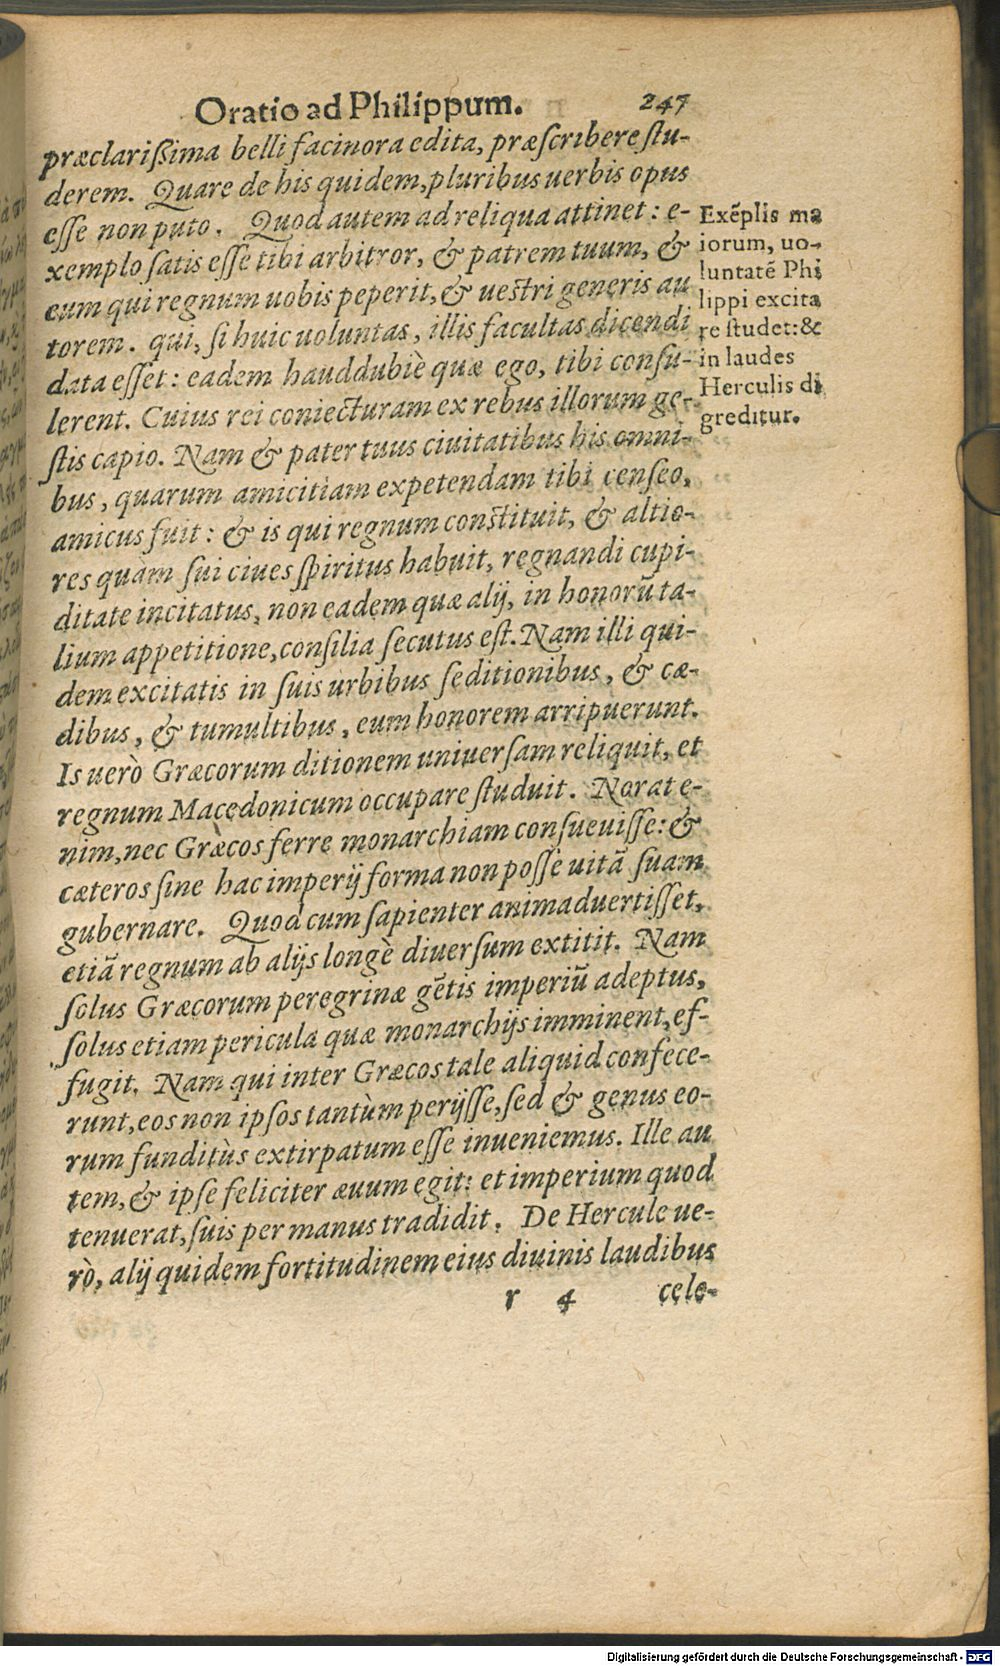 Oratio ad Philippum. 247
præclarißima belli facinora edita, præſcribere ſtu-
derem. Quare de his quidem, pluribus uerbis opus
eſſe non puto. Quod autem ad reliqua attinet: e-
xemplo ſatis eſſe tibi arbitror, & patrem tuum, &
eum qui regnum uobis peperit, & ueſtri generis au
torem. qui, ſi huic uoluntas, illis facultas dicendi
data eſſet: eadem hauddubiè quæ ego, tibi conſu-
lerent. Cuius rei coniecturam ex rebus illorum ge-
ſtis capio. Nam & pater tuus ciuitatibus his omni-
bus, quarum amicitiam expetendam tibi cenſeo,
amicus fuit: & is qui regnum conſtituit, & altio-
res quàm ſui ciues ſpiritus habuit, regnandi cupi-
ditate incitatus, non eadem quæ alij, in honorũ ta-
lium appetitione, conſilia ſecutus eſt. Nam illi qui-
dem excitatis in ſuis urbibus ſeditionibus, & cæ-
dibus, & tumultibus, eum honorem arripuerunt.
Is uerò Græcorum ditionem uniuerſam reliquit, et
regnum Macedonicum occupare ſtuduit. Norat e-
nim, nec Græcos ferre monarchiam conſueuiſſe: &
cæteros ſine hac imperij forma non poſſe uitã ſuam
gubernare. Quod cum ſapienter animaduertiſſet,
etiã regnum ab alijs longè diuerſum extitit. Nam
ſolus Græcorum peregrinæ gẽtis imperiũ adeptus,
ſolus etiam pericula quæ monarchijs imminent, ef-
fugit. Nam qui inter Græcos tale aliquid confece-
runt, eos non ipſos tantùm perijſſe, ſed & genus eo-
rum funditùs extirpatum eſſe inueniemus. Ille au
tem, & ipſe feliciter æuum egit: et imperium quod
tenuerat, ſuis per manus tradidit. De Hercule ue-
rò, alij quidem fortitudinem eius diuinis laudibus
r 4 cele-
Exẽplis ma
iorum, uo-
luntatẽ Phi
lippi excita
re ſtudet: &
in laudes
Herculis di
greditur.
Digitalisierung gefördert durch die Deutsche Forschungsgemeinschaft - DFG